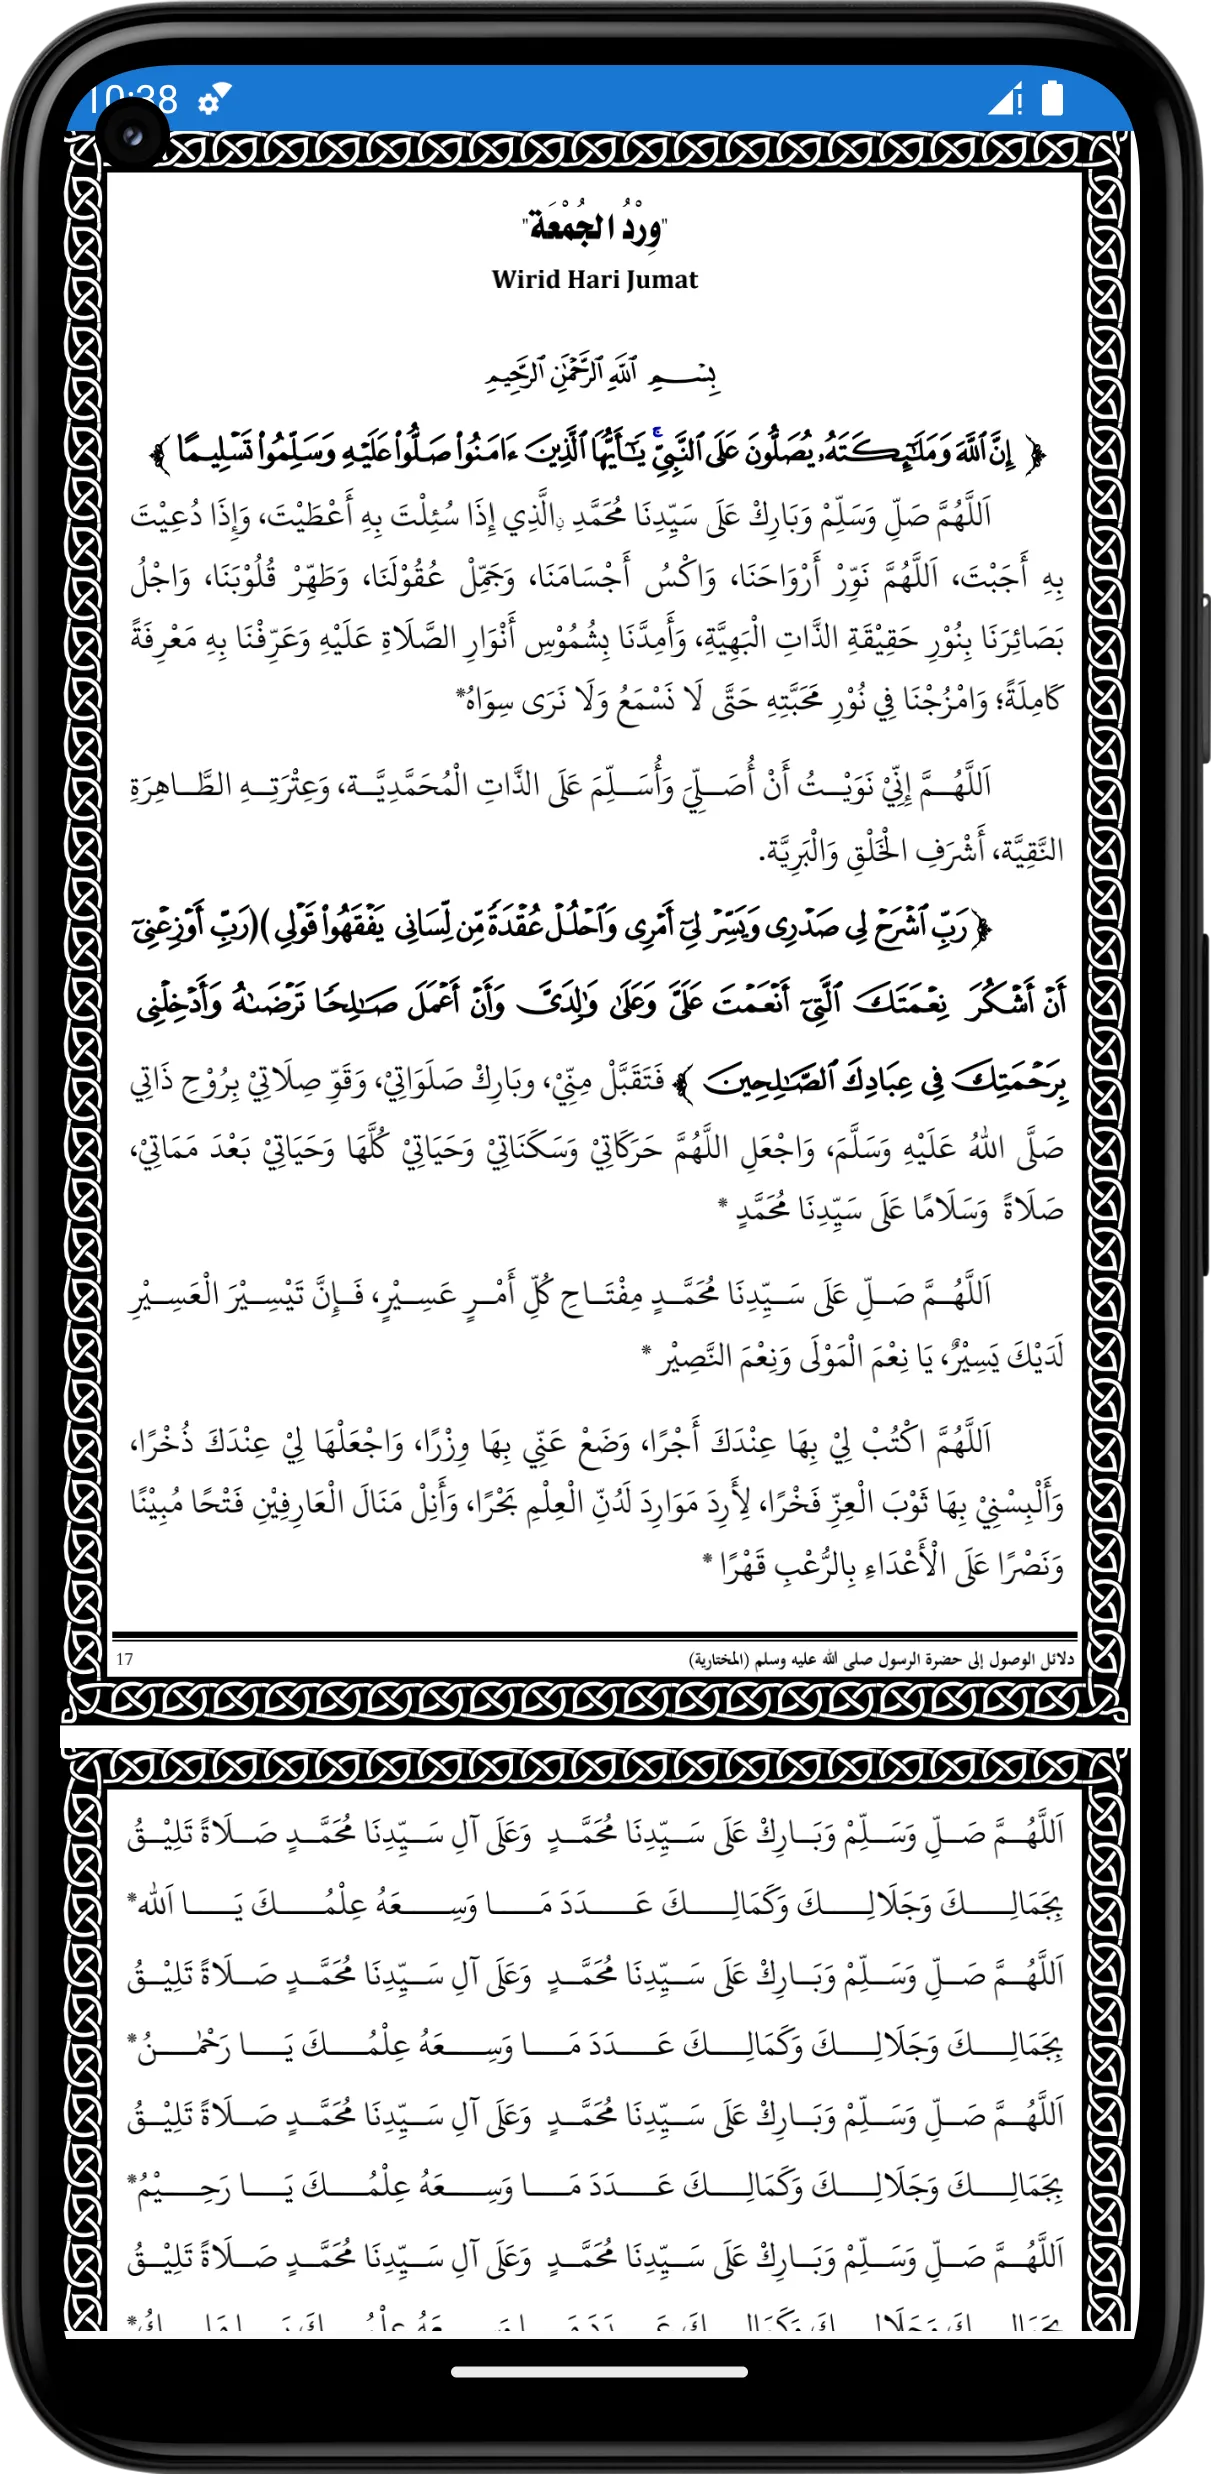 10:38
"وِرْدُ الجُمْعَة"
Wirid Hari Jumat
بِسْمِ ٱللَّهِ ٱلرَّحْمَٰنِ ٱلرَّحِيمِ
﴿ إِنَّ ٱللَّهَ وَمَلَٰٓئِكَتَهُۥ يُصَلُّونَ عَلَى ٱلنَّبِيِّۚ يَٰٓأَيُّهَا ٱلَّذِينَ ءَامَنُوا۟ صَلُّوا۟ عَلَيْهِ وَسَلِّمُوا۟ تَسْلِيمًا ﴾
اَللَّهُمَّ صَلِّ وَسَلِّمْ وَبَارِكْ عَلَى سَيِّدِنَا مُحَمَّدِ ۨالَّذِي إِذَا سُئِلْتَ بِهِ أَعْطَيْتَ، وَإِذَا دُعِيْتَ
بِهِ أَجَبْتَ، اَللَّهُمَّ نَوِّرْ أَرْوَاحَنَا، وَاكْسُ أَجْسَامَنَا، وَجَمِّلْ عُقُوْلَنَا، وَطَهِّرْ قُلُوْبَنَا، وَاجْلُ
بَصَائِرَنَا بِنُوْرِ حَقِيْقَةِ الذَّاتِ الْبَهِيَّةِ، وَأَمِدَّنَا بِشُمُوْسِ أَنْوَارِ الصَّلَاةِ عَلَيْهِ وَعَرِّفْنَا بِهِ مَعْرِفَةً
كَامِلَةً؛ وَامْزُجْنَا فِي نُوْرِ مَحَبَّتِهِ حَتَّى لَا نَسْمَعُ وَلَا نَرَى سِوَاهُ*
اَللَّهُمَّ إِنِّيْ نَوَيْتُ أَنْ أُصَلِّيَ وَأُسَلِّمَ عَلَى الذَّاتِ الْمُحَمَّدِيَّة، وَعِتْرَتِهِ الطَّاهِرَةِ
النَّقِيَّة، أَشْرَفِ الْخَلْقِ وَالْبَرِيَّة.
﴿ رَبِّ ٱشْرَحْ لِى صَدْرِى وَيَسِّرْ لِىٓ أَمْرِى وَٱحْلُلْ عُقْدَةً مِّن لِّسَانِى يَفْقَهُوا۟ قَوْلِى )(رَبِّ أَوْزِعْنِىٓ
أَنْ أَشْكُرَ نِعْمَتَكَ ٱلَّتِىٓ أَنْعَمْتَ عَلَىَّ وَعَلَىٰ وَٰلِدَىَّ وَأَنْ أَعْمَلَ صَٰلِحًا تَرْضَىٰهُ وَأَدْخِلْنِى
بِرَحْمَتِكَ فِى عِبَادِكَ ٱلصَّٰلِحِينَ ﴾ فَتَقَبَّلْ مِنِّيْ، وبَارِكْ صَلَوَاتِيْ، وَقَوِّ صِلَاتِيْ بِرُوْحِ ذَاتِي
صَلَّى اللهُ عَلَيْهِ وَسَلَّمَ، وَاجْعَلِ اللَّهُمَّ حَرَكَاتِيْ وَسَكَنَاتِيْ وَحَيَاتِيْ كُلَّهَا وَحَيَاتِيْ بَعْدَ مَمَاتِيْ،
صَلَاةً وَسَلَامًا عَلَى سَيِّدِنَا مُحَمَّدٍ *
اَللَّهُمَّ صَلِّ عَلَى سَيِّدِنَا مُحَمَّدٍ مِفْتَاحِ كُلِّ أَمْرٍ عَسِيْرٍ، فَإِنَّ تَيْسِيْرَ الْعَسِيْرِ
لَدَيْكَ يَسِيْرٌ، يَا نِعْمَ الْمَوْلَى وَنِعْمَ النَّصِيْر *
اَللَّهُمَّ اكْتُبْ لِيْ بِهَا عِنْدَكَ أَجْرًا، وَضَعْ عَنِّي بِهَا وِزْرًا، وَاجْعَلْهَا لِيْ عِنْدَكَ ذُخْرًا،
وَأَلْبِسْنِيْ بِهَا ثَوْبَ الْعِزِّ فَخْرًا، لِأَرِدَ مَوَارِدَ لَدُنِّ الْعِلْمِ بَحْرًا، وَأَنِلْ مَنَالَ الْعَارِفِيْنِ فَتْحًا مُبِيْنًا
وَنَصْرًا عَلَى الْأَعْدَاءِ بِالرُّعْبِ قَهْرًا *
دلائل الوصول إلى حضرة الرسول صلى الله عليه وسلم (المختارية) 17
اَللَّهُمَّ صَلِّ وَسَلِّمْ وَبَارِكْ عَلَى سَيِّدِنَا مُحَمَّدٍ وَعَلَى آلِ سَيِّدِنَا مُحَمَّدٍ صَلَاةً تَلِيْقُ
بِجَمَالِكَ وَجَلَالِكَ وَكَمَالِكَ عَدَدَ مَا وَسِعَهُ عِلْمُكَ يَا اَلله*
اَللَّهُمَّ صَلِّ وَسَلِّمْ وَبَارِكْ عَلَى سَيِّدِنَا مُحَمَّدٍ وَعَلَى آلِ سَيِّدِنَا مُحَمَّدٍ صَلَاةً تَلِيْقُ
بِجَمَالِكَ وَجَلَالِكَ وَكَمَالِكَ عَدَدَ مَا وَسِعَهُ عِلْمُكَ يَا رَحْمٰنُ*
اَللَّهُمَّ صَلِّ وَسَلِّمْ وَبَارِكْ عَلَى سَيِّدِنَا مُحَمَّدٍ وَعَلَى آلِ سَيِّدِنَا مُحَمَّدٍ صَلَاةً تَلِيْقُ
بِجَمَالِكَ وَجَلَالِكَ وَكَمَالِكَ عَدَدَ مَا وَسِعَهُ عِلْمُكَ يَا رَحِيْمُ*
اَللَّهُمَّ صَلِّ وَسَلِّمْ وَبَارِكْ عَلَى سَيِّدِنَا مُحَمَّدٍ وَعَلَى آلِ سَيِّدِنَا مُحَمَّدٍ صَلَاةً تَلِيْقُ
بِجَمَالِكَ وَجَلَالِكَ وَكَمَالِكَ عَدَدَ مَا وَسِعَهُ عِلْمُكَ يَا مَالِكُ*